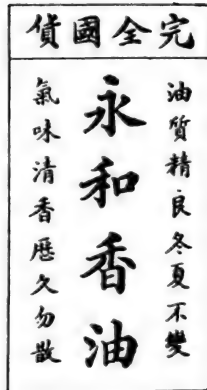 完全國貨
油質精良冬夏不變
永和香油
氣味清香歷久勿散